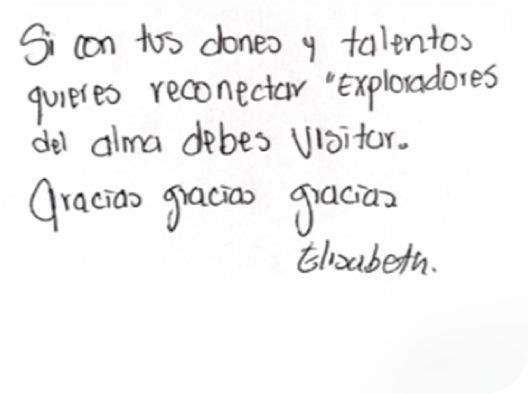 Si con tus dones y talentos
quieres reconectar "Exploradores
del alma debes visitar.
Gracias gracias gracias
Elisabeth.